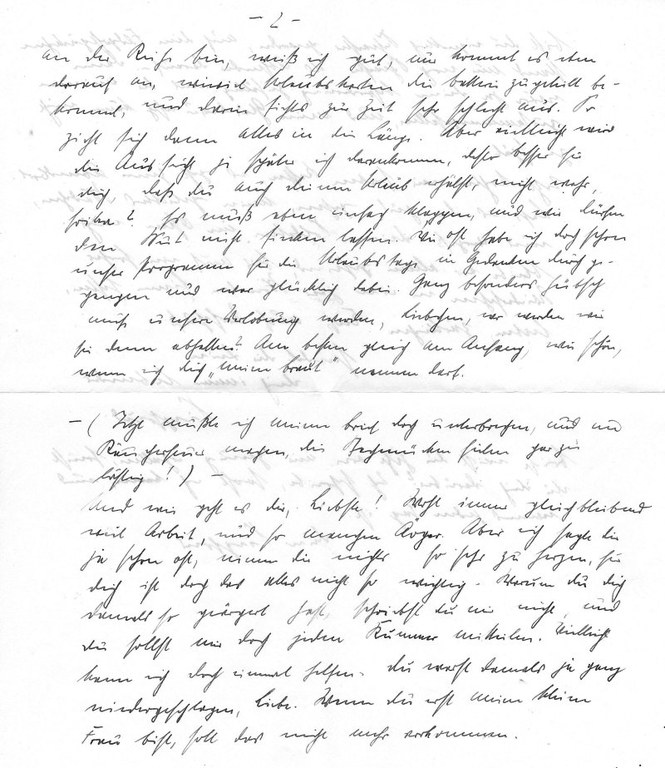 - 2 -
an der Reihe bin, weiß ich gut, nur kommt es eben
darauf an, wieviel Urlaubskarten die batterie zugeteilt be-
kommt, und darin siehts zur Zeit sehr schlecht aus. So
zieht sich denn alles in die Länge. Aber vielleicht wird
die Aussicht je später ich darankomme, desto besser für
dich, daß du auch deinen Urlaub erhälst, nicht wahr,
Es muß eben einfach klappen, und wir dürfen
den Mut nicht sinken lassen. Wie oft habe ich doch schon
unser Programm für die Urlaubstage in Gedanken durch ge-
gangen und war glücklich dabei. Ganz besonders hübsch
muß unsere Verlobung werden, Liebchen, wo werden wir
sie denn abhalten? Am besten gleich am Anfang, wie schön,
wenn ich dich „meine braut" nennen darf.
- ( Jetzt mußte ich meinen brief doch unterbrechen, und ein
Räucherfeuer machen, die Stechmücken fielen gar zu
lästig! ) -
Und wie geht es dir, Liebste! Wohl immer gleichbleibend
viel Arbeit, und so manchen Ärger. Aber ich sagte dir
ja schon oft, nimm dir nichts so sehr zu Herzen, für
dich ist doch das alles nicht so wichtig. Warum du dich
damals so geärgert hast, schriebst du mir nicht, und
du sollst mir doch jeden Kummer mitteilen. Vielleicht
kann ich doch einmal helfen. du warst damals ja ganz
niedergeschlagen, Liebe. Wenn du erst meine kleine
Frau bist, soll das nicht mehr vorkommen.